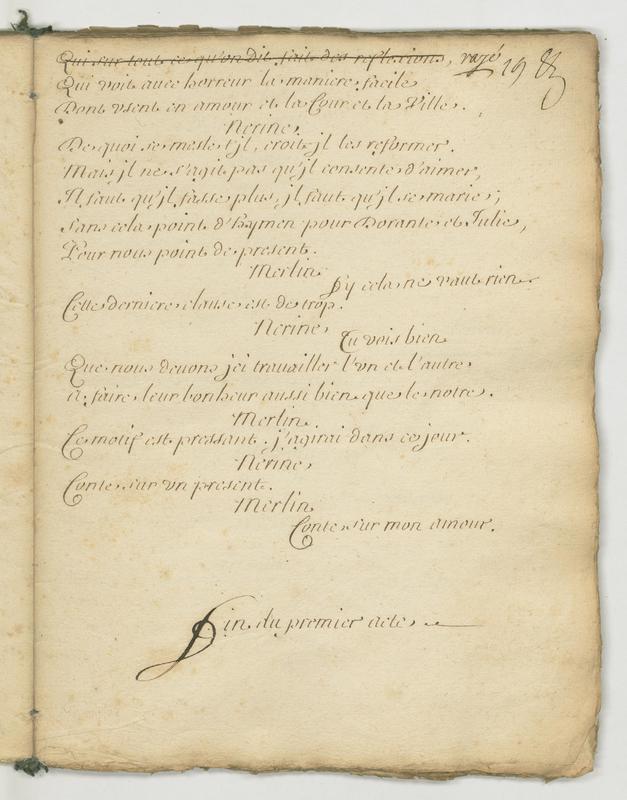 Qui sur tout ce qu'on dit fait des reflexions, rayé 19
Qui voit avec horreur la maniere facile
Dont usent en amour et la Cour et la Ville.
Nerine
De quoi se mesle t'jl, croit jl les reformer.
Mais jl ne s'agit pas qu'jl consente d'aimer,
Il faut qu'jl fasse plus, jl faut qu'jl se marie;
Sans cela point d'hymen pour Dorante et Julie,
Pour nous point de present.
Merlin
Sy cela ne vaut rien
Cette derniere clause est de trop.
Nerine
Tu vois bien
Que nous devons jci travailler l'un et l'autre
A faire leur bonheur aussi bien que le notre.
Merlin.
Ce motif est pressant. j'agirai dans ce jour.
Nerine
Conte sur un present.
Merlin
Conte sur mon amour.
Fin du premier acte